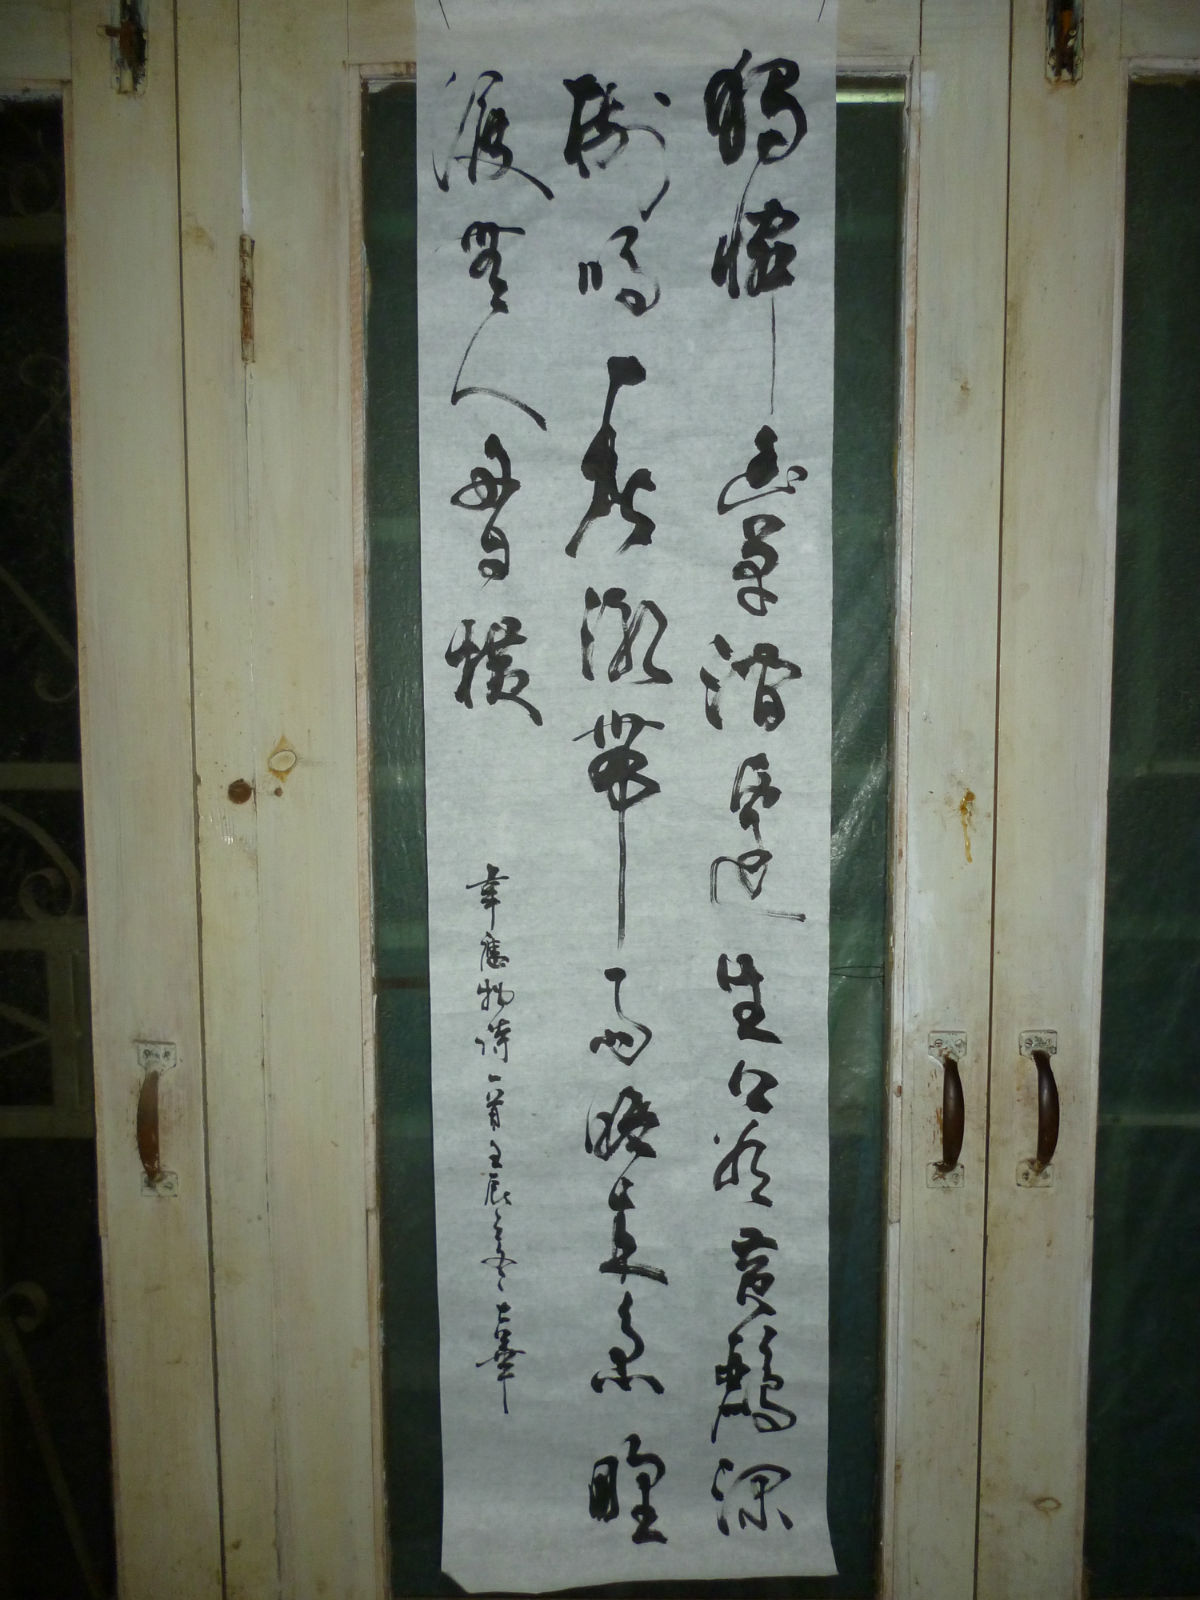 獨憐幽草澗邊生上有黃鸝深
樹鳴春潮帶雨晚來急野
渡無人舟自橫
韋應物詩一首壬辰之冬